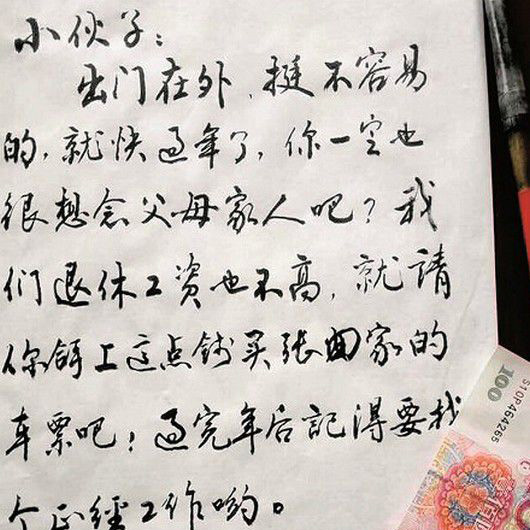 小伙子：
出门在外，挺不容易
的，就快过年了，你一定也
很想念父母家人吧？我
们退休工资也不高，就請
你拿上这点钱买张回家的
车票吧！过完年后記得要找
个正經工作哟。
100
S10P464265